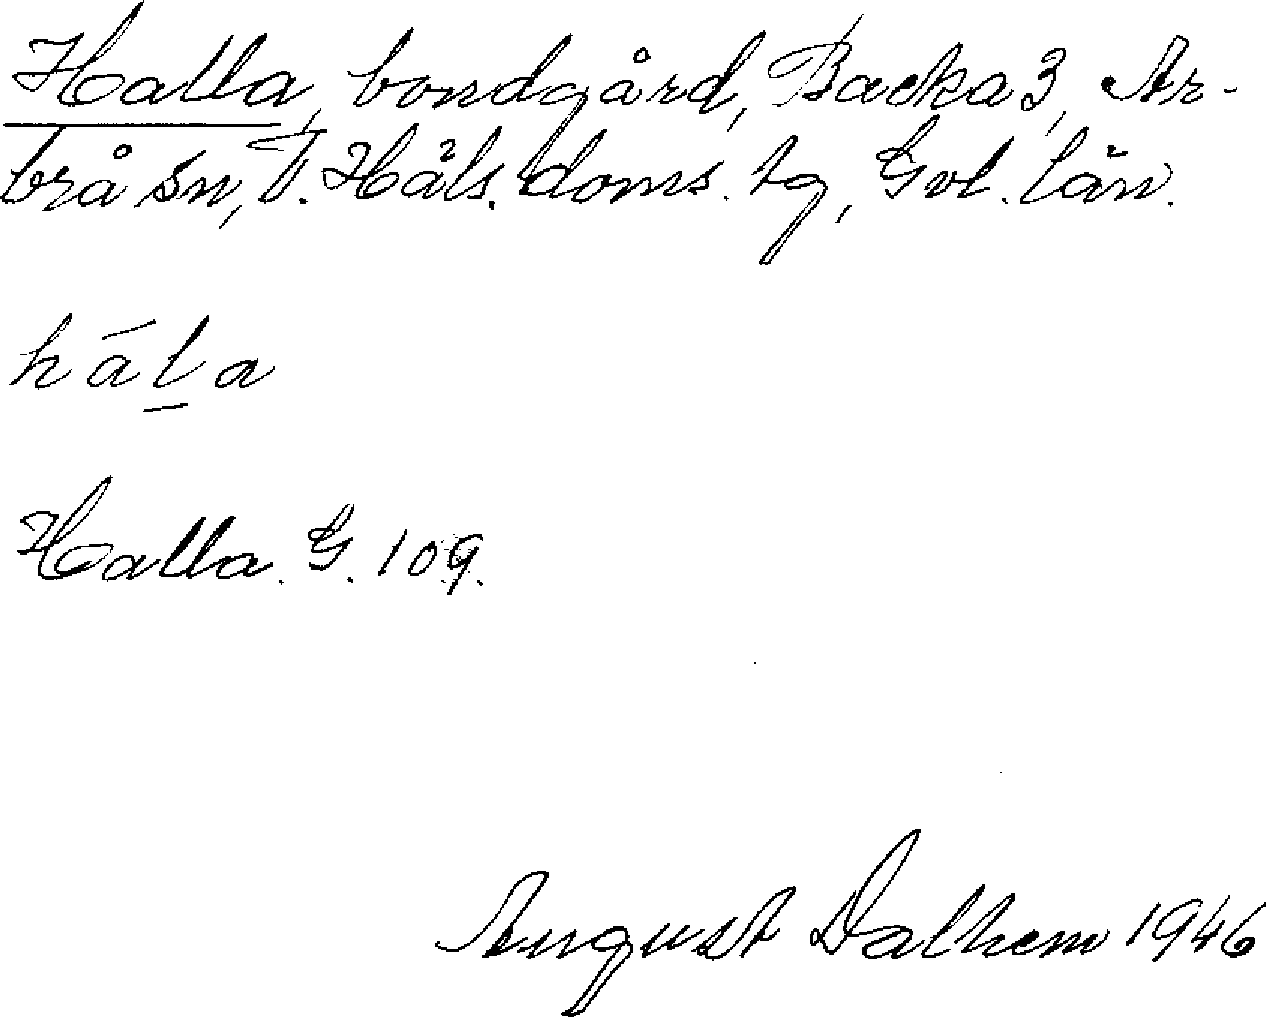 Halla, bondgård, Backa 3, Ar-
brå sn, V. Häls. doms. tg, Gvl. län.
háḻa
Halla. G. 109.
August Dalhem 1946